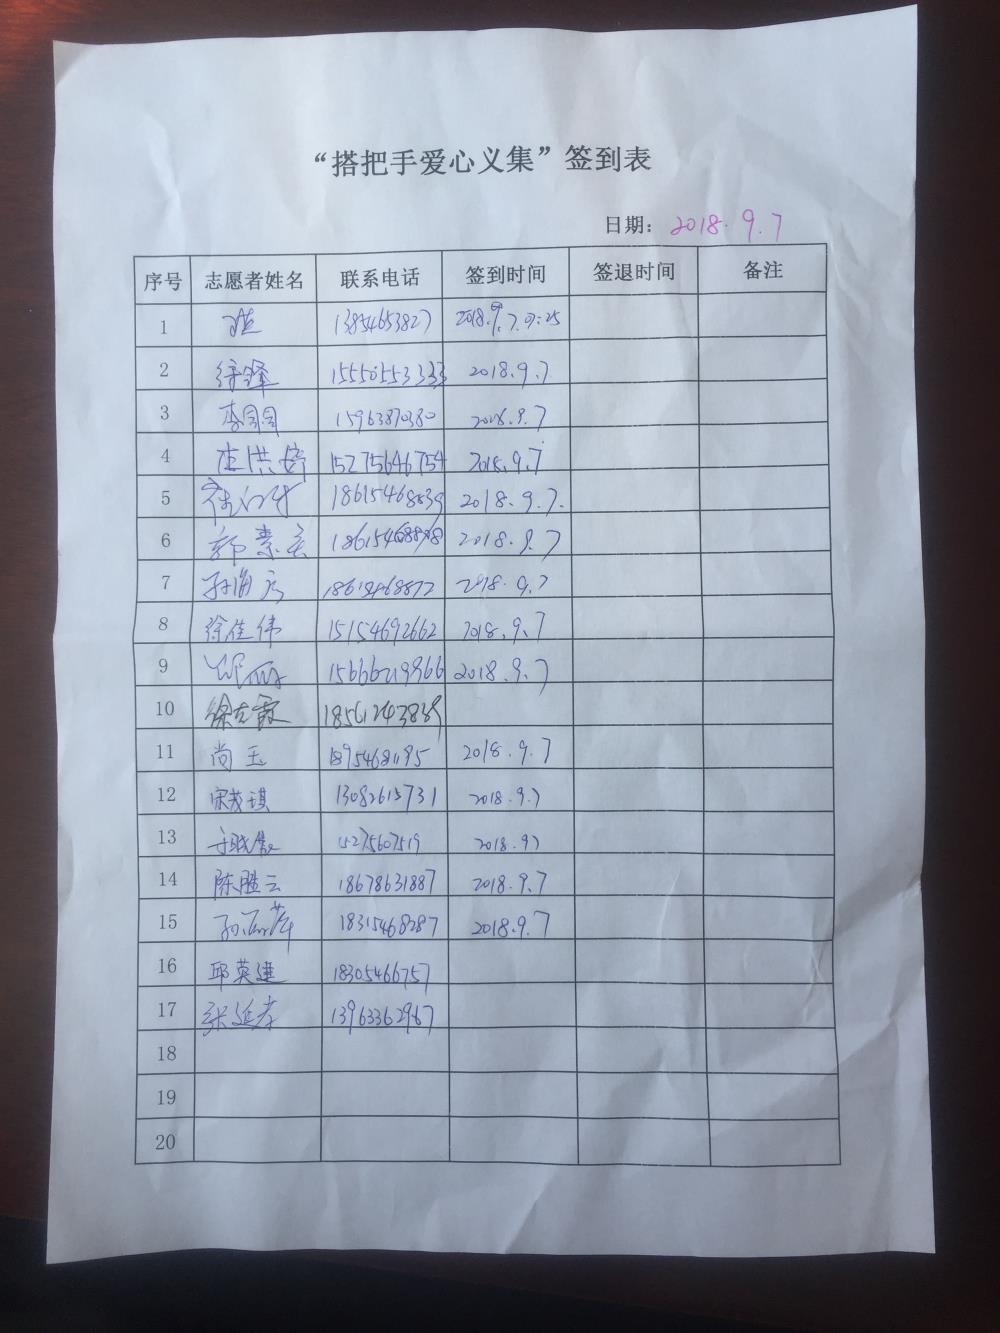 “搭把手爱心义集”签到表
日期：2018.9.7
序号 志愿者姓名 联系电话 签到时间 签退时间 备注
1 2018.9.7.9:25
2 徐锋 15550553333 2018.9.7
3 李圆圆 15963870380 2018.9.7
4 15275646754 2018.9.7
5 18615468839 2018.9.7.
6 郭素美 18615468898 2018.9.7
7 18615468872 2018.9.7
8 徐佳伟 15154692662 2018.9.7
9 2018.9.7
10 徐克霞 18561243839
11 尚玉 18954681195 2018.9.7
12 宋茂琪 13082615731 2018.9.7
13 15275607519 2018.9.7
14 陈胜云 18678631887 2018.9.7
15 18315468287 2018.9.7
16 邱英建 18305466757
17 张延孝 13963362967
18
19
20